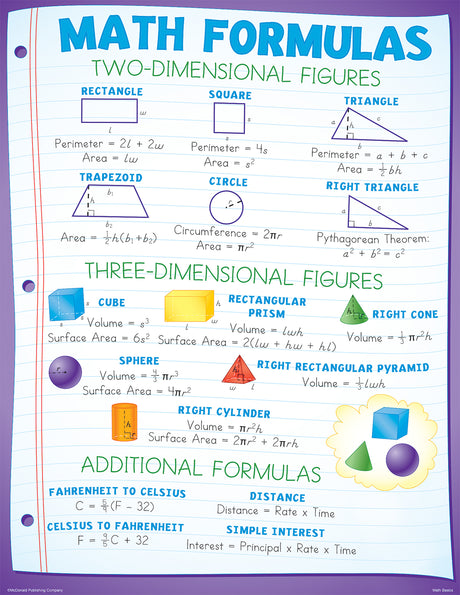 MATH FORMULAS
TWO-DIMENSIONAL FIGURES
RECTANGLE
w
l
Perimeter = 2l + 2w
Area = lw
SQUARE
s
s
Perimeter = 4s
Area = s²
TRIANGLE
a
h
c
b
Perimeter = a + b + c
Area = ½bh
TRAPEZOID
b₁
h
b₂
Area = ½h(b₁+b₂)
CIRCLE
r
Circumference = 2πr
Area = πr²
RIGHT TRIANGLE
a
c
b
Pythagorean Theorem:
a² + b² = c²
THREE-DIMENSIONAL FIGURES
s
s
s
CUBE
Volume = s³
Surface Area = 6s²
h
w
l
RECTANGULAR
PRISM
Volume = lwh
Surface Area = 2(lw + hw + hl)
h
r
RIGHT CONE
Volume = ⅓πr²h
r
SPHERE
Volume = 4/3 πr³
Surface Area = 4πr²
h
w
l
RIGHT RECTANGULAR PYRAMID
Volume = ⅓lwh
h
r
RIGHT CYLINDER
Volume = πr²h
Surface Area = 2πr² + 2πrh
ADDITIONAL FORMULAS
FAHRENHEIT TO CELSIUS
C = 5/9(F – 32)
DISTANCE
Distance = Rate x Time
CELSIUS TO FAHRENHEIT
F = 9/5C + 32
SIMPLE INTEREST
Interest = Principal x Rate x Time
©McDonald Publishing Company
Math Basics